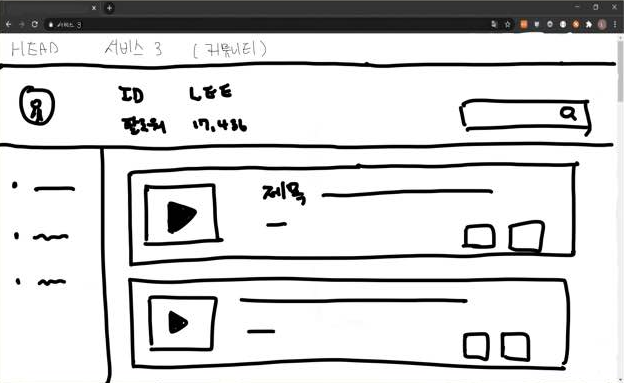 서비스 3
HEAD 서비스 3 (커뮤니티)
ID LEE
팔로워 17,436
제목